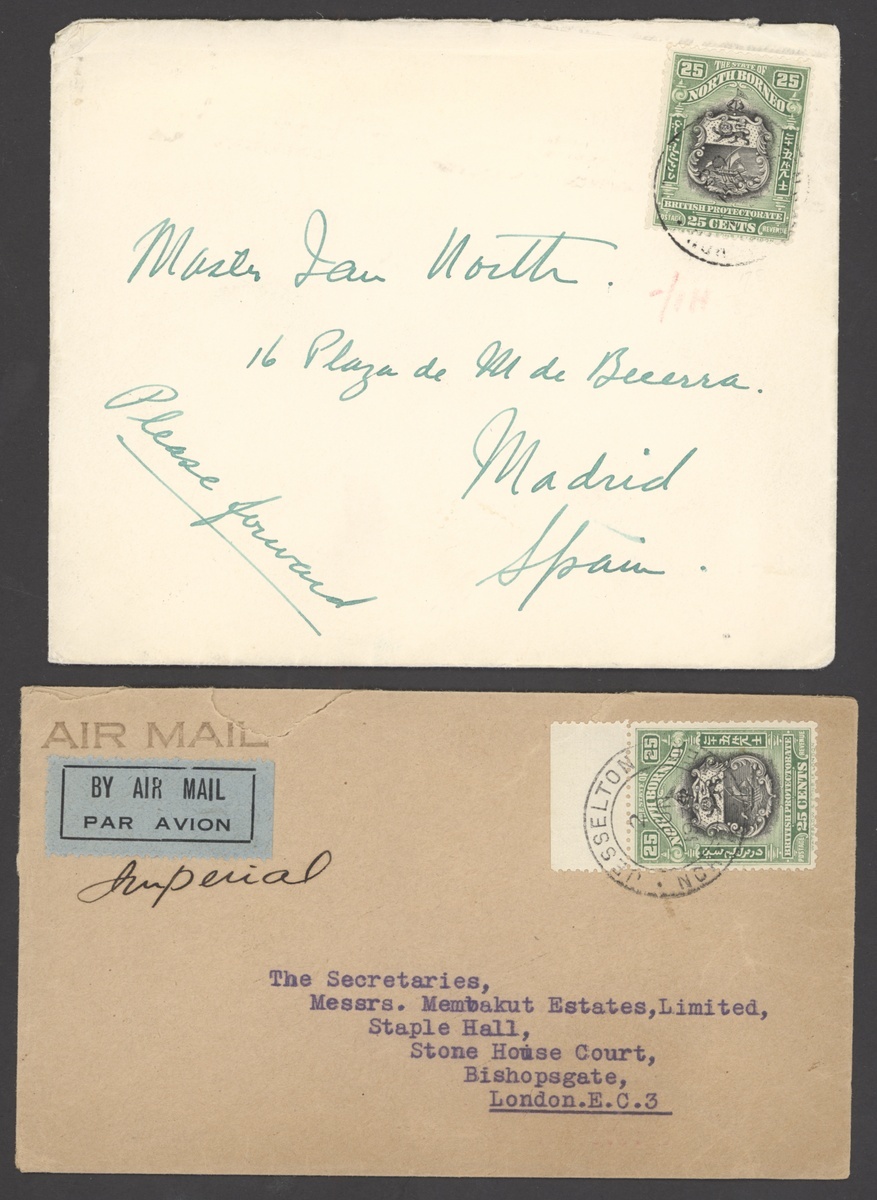 25 25
THE STATE OF
NORTH BORNEO
BRITISH PROTECTORATE
POSTAGE 25 CENTS REVENUE
Master Ian North.
16 Plaza de M de Becerra.
Madrid
Spain.
Please forward
AIR MAIL
BY AIR MAIL
PAR AVION
Imperial
25 25
THE STATE OF
NORTH BORNEO
BRITISH PROTECTORATE
POSTAGE 25 CENTS REVENUE
JESSELTON
The Secretaries,
Messrs. Membakut Estates,Limited,
Staple Hall,
Stone House Court,
Bishopsgate,
London.E.C.3